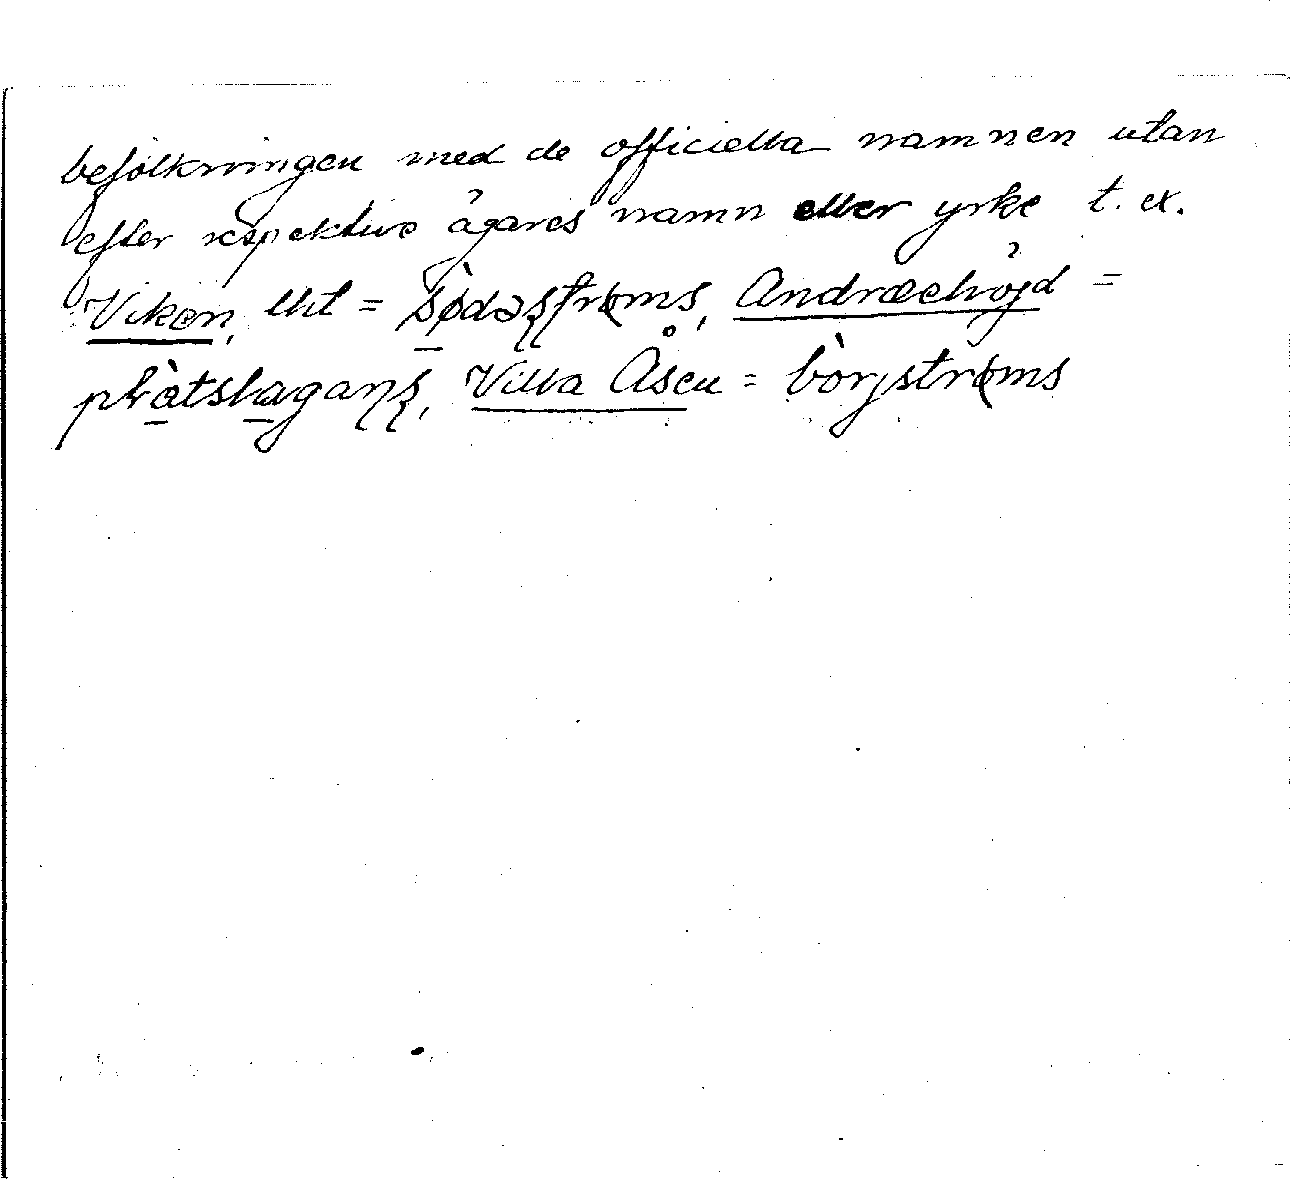 befolkningen med de officiella namnen utan
efter respektive ägares namn eller yrke t. ex.
Viken, lht = södəʂtrøms, Andraehöjd =
plàtslagaɳʂ, Villa Åsen = bòrjstrøms